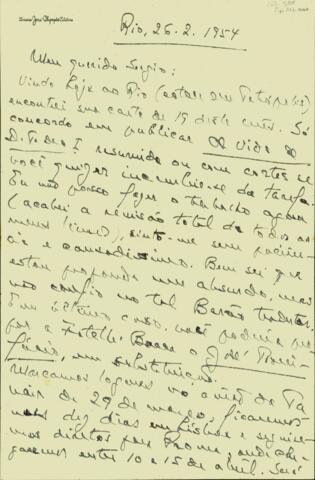 Rio, 26.2.1954
Meu querido Sergio:
Vindo hoje ao Rio (estou em Petrópolis)
encontrei sua carta de 19 deste mês. Só
concordo em publicar A Vida de
D. Pedro I resumida ou com cortes se
você quiser incumbir-se da tarefa.
Eu não posso fazer o trabalho agora
(acabei a revisão total de todos os
meus livros), sinto-me sem paciên-
cia e cansadíssimo. Bem sei que
estou propondo um absurdo, mas
não confio no tal Barão tradutor.
Em último caso, você poderia pe-
dir a
ou a José
em substituição.
Marcamos lugares no avião da Pa
nair de 29 de março, ficaremos
uns dez dias em Lisboa e seguire-
mos diretos para Roma, onde che-
garemos entre 10 e 15 de abril. Será